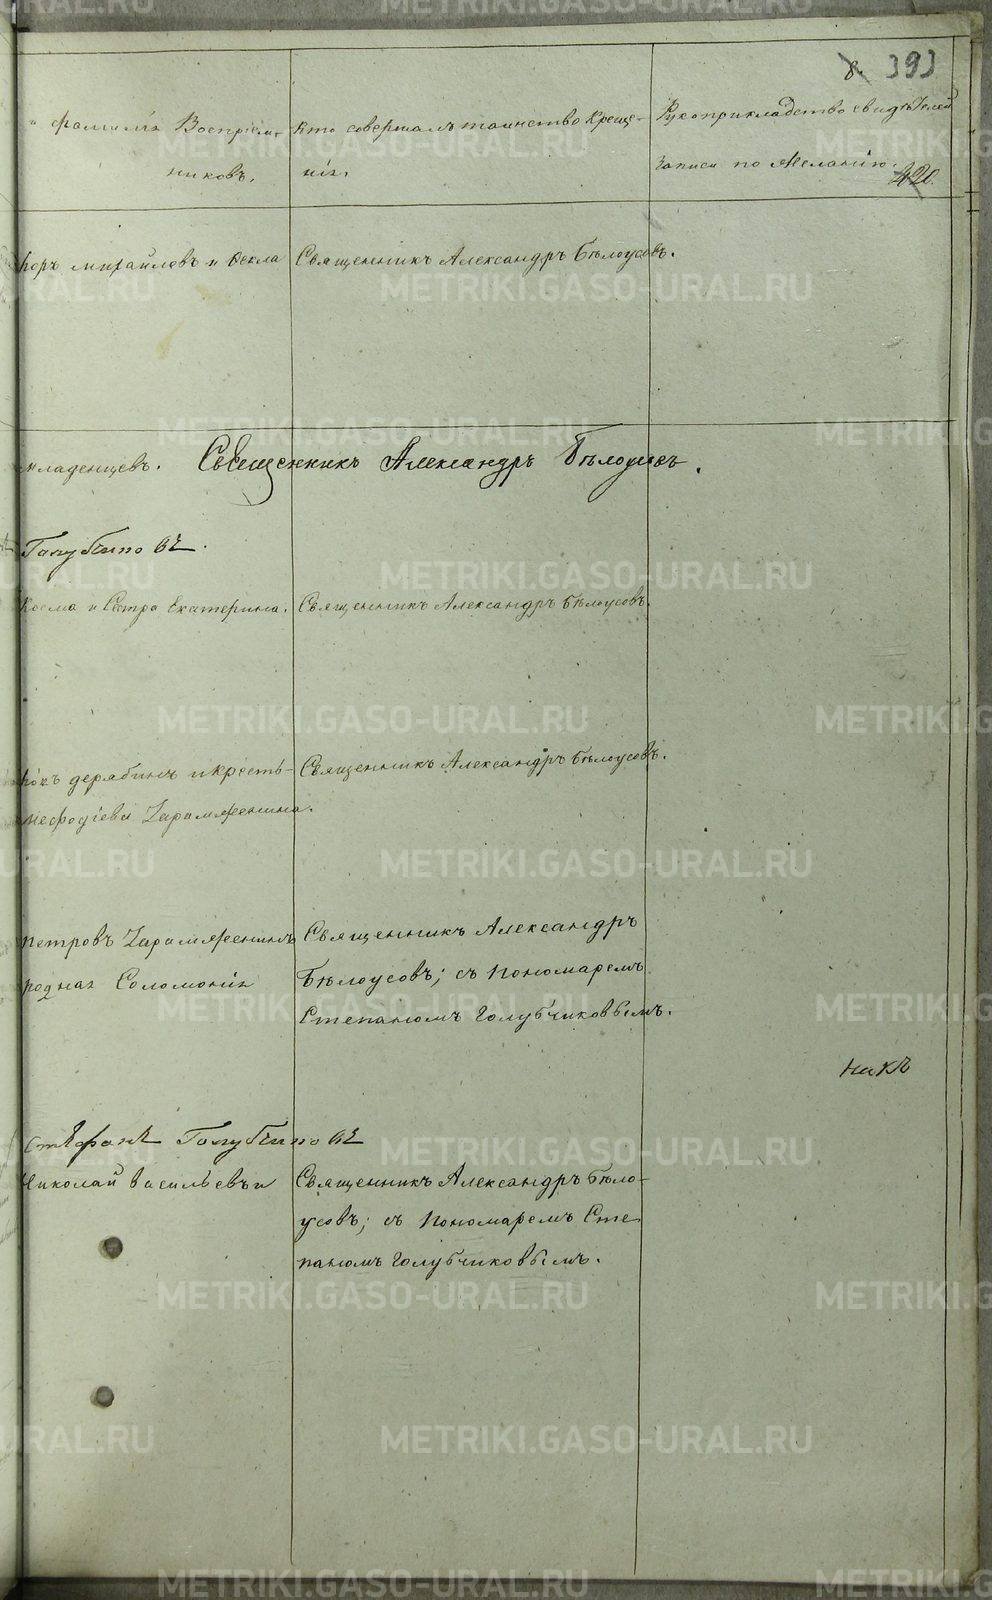 8. 393
и фамилія Воспріем-
никовъ.
Кто совершалъ таинство Креще-
нія.
Рукоприкладство свидѣтелей
записи по желанію.
420.
михайловъ и Ѳекла
Священникъ Александръ Бѣлоусовъ.
младенцевъ. Священникъ Александръ Бѣлоусовъ.
Косма и Сестра Екатерина.
Священникъ Александръ Бѣлоусовъ.
дерябинъ и крестья-
мефодіева Харамженина.
Священникъ Александръ Бѣлоусовъ.
петровъ Харамженинъ
родная Соломонія
Священникъ Александръ
Бѣлоусовъ; съ пономаремъ
Степаномъ Голубчиковымъ.
Николай Васильевъ и
Священникъ Александръ Бѣло-
усовъ; съ пономаремъ Сте-
паномъ Голубчиковымъ.
METRIKI.GASO-URAL.RU